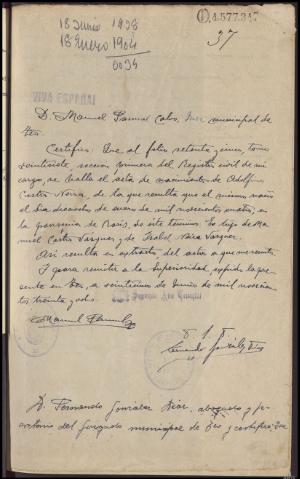 18 Junio 1938
18 Enero 1904
0034
4.577.347
37
VIVA ESPAÑA!
D. Manuel Calvo, Juez municipal de
Certifico: Que al folio setenta y cinco, tomo
veintisiete, seccion primera del Registro civil de mi
cargo, se halla el acta de nacimiento de Adolfo
Castro Neira, de la que resulta que el mismo nació
el dia dieciocho de enero de mil novecientos cuatro, en
la parroquia de de este término. Es hijo de Ma-
nuel Castro Vazquez y de Isabel Neira Vazquez.
Asi resulta en extracto del acta a que me remito.
Y para remitir a la Superioridad, expido la pre-
sente en a veintiuno de Junio de mil novecien-
tos treinta y ocho.
Manuel
D. Fernando Gonzalez abogado y se-
cretario del Juzgado municipal de